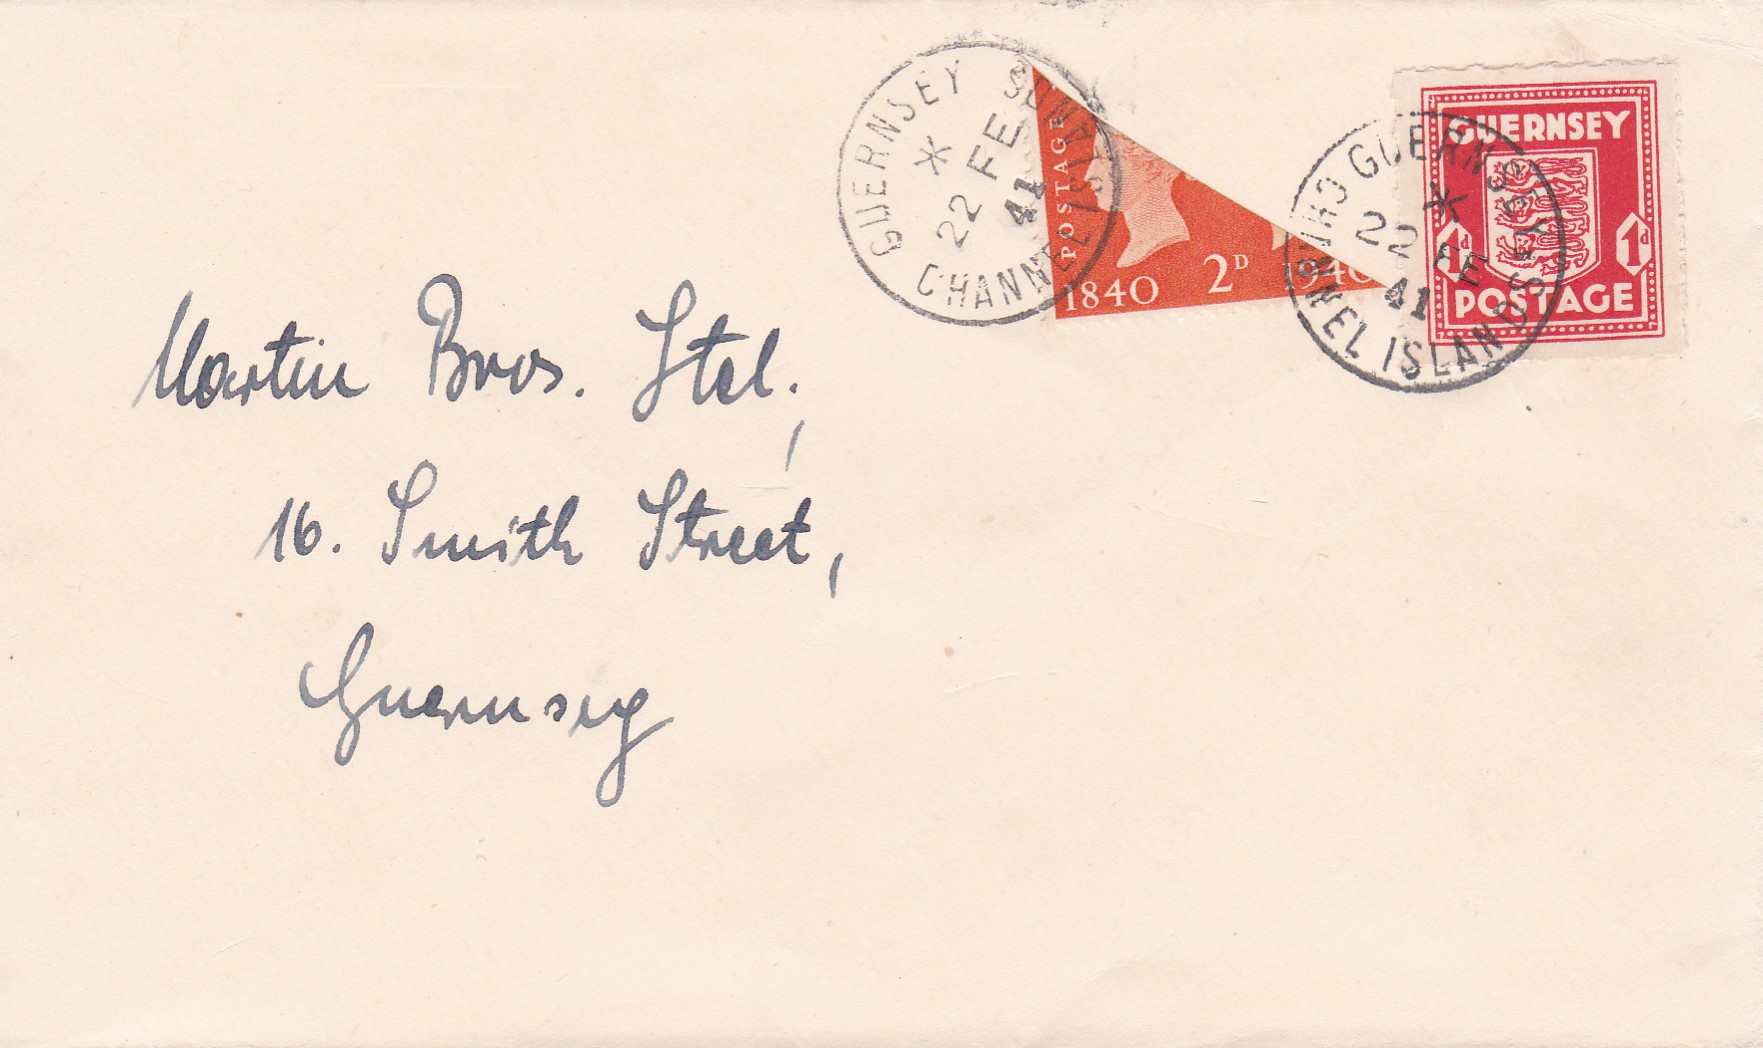 GUERNSEY
CHANNEL ISLANDS
22 FE
41
POSTAGE
1840 2D 1940
GUERNSEY
1d 1d
POSTAGE
GUERNSEY
CHANNEL ISLANDS
22 FE
41
Martin Bros. Ltd.,
16. Smith Street,
Guernsey